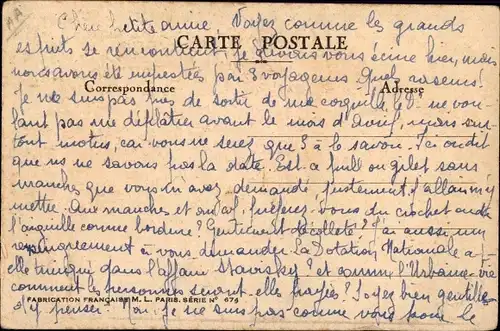 Chère petite amie. Voyez comme les grands
esprits se rencontrent, je devais vous écrire hier, mais
CARTE POSTALE
nous avons été empestées par 3 voyageurs. Quel rasoir!
Correspondance Adresse
Je ne suis pas près de sortir de ma coquille et ne vou-
lant pas me déplâtrer avant le mois d'avril, mais sur-
tout motus, car vous ne serez que 3 à le savoir. Ici on dit
que ns ne savons pas la date. Est-ce pull ou gilet sans
manches que vous m'avez demandé justement j'allais m'y
mettre. Aux manches et au col, préférez-vous du crochet ou de
l'aiguille comme bordure? Gentiment décolleté? J'ai aussi un
renseignement à vous demander. La Dotation Nationale a-t-
elle trinqué dans l'affaire Stavisky? et comme l'Urbaine-vie
comment les personnes seront elles payées? Soyez bien gentille
FABRICATION FRANÇAISE M. L. PARIS. SÉRIE N° 679
d'y penser. Moi, je ne suis pas comme vous pour le